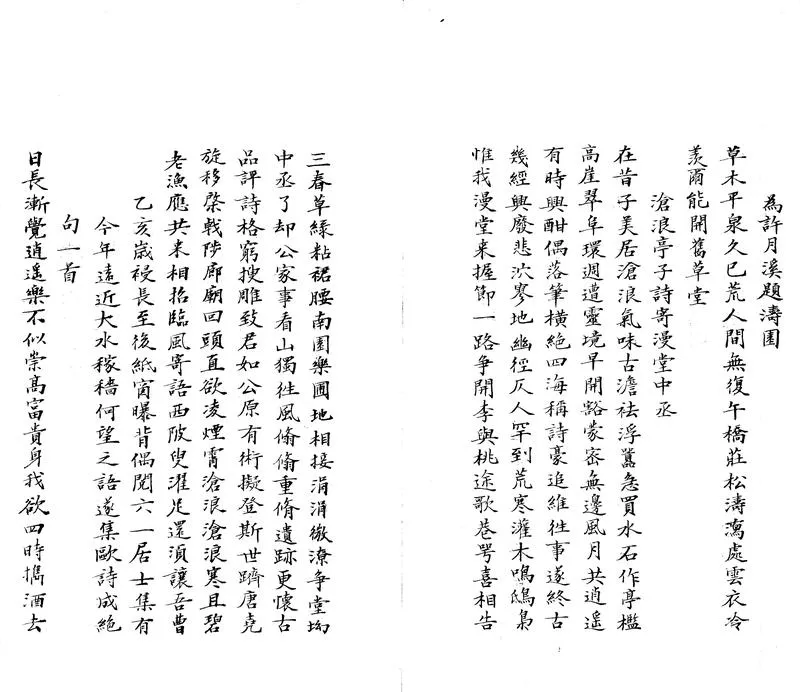 為許月溪題濤園
草木平泉久已荒人間無復午橋莊松濤瀉處雲衣冷
羨爾能開舊草堂
滄浪亭子詩寄漫堂中丞
在昔子美居滄浪氣味古澹祛浮囂急買水石作亭檻
高崖翠阜環週遭靈境早開豁蒙密無邊風月共逍遥
有時興酣偶落筆橫絶四海稱詩豪追維往事遂終古
幾經興廢悲泬寥地幽徑仄人罕到荒寒灌木鳴鴟梟
惟我漫堂来握節一路争開李與桃途歌巷咢喜相告
三春草緑粘裙腰南園樂圃地相接涓涓微潦争堂坳
中丞了却公家事看山獨往風翛翛重脩遺跡更懷古
品評詩格窮搜雕致君如公原有術擬登斯世躋唐尭
旋移棨戟陟廊廟回頭直欲凌煙霄滄浪滄浪寒且碧
老漁應共来相招臨風寄語西陂叟濯足還湏讓吾曹
乙亥嵗祲長至後紙窗曝背偶閲六一居士集有
今年遠近大水稼穡何望之語遂集歐詩成絶
句一首
日長漸覺逍遥樂不似崇髙富貴身我欲四時携酒去